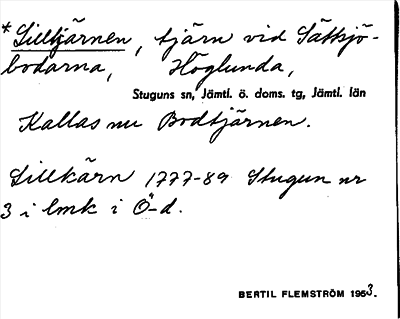 *Silltjärnen, tjärn vid Sättsjö-
bodarna, Höglunda,
Stuguns sn, Jämtl. ö. doms. tg, Jämtl. län
Kallas nu Bodtjärnen.
Sillkärn 1777-89 Stugun nr
3 i lmk i Ö-d.
BERTIL FLEMSTRÖM 1953.